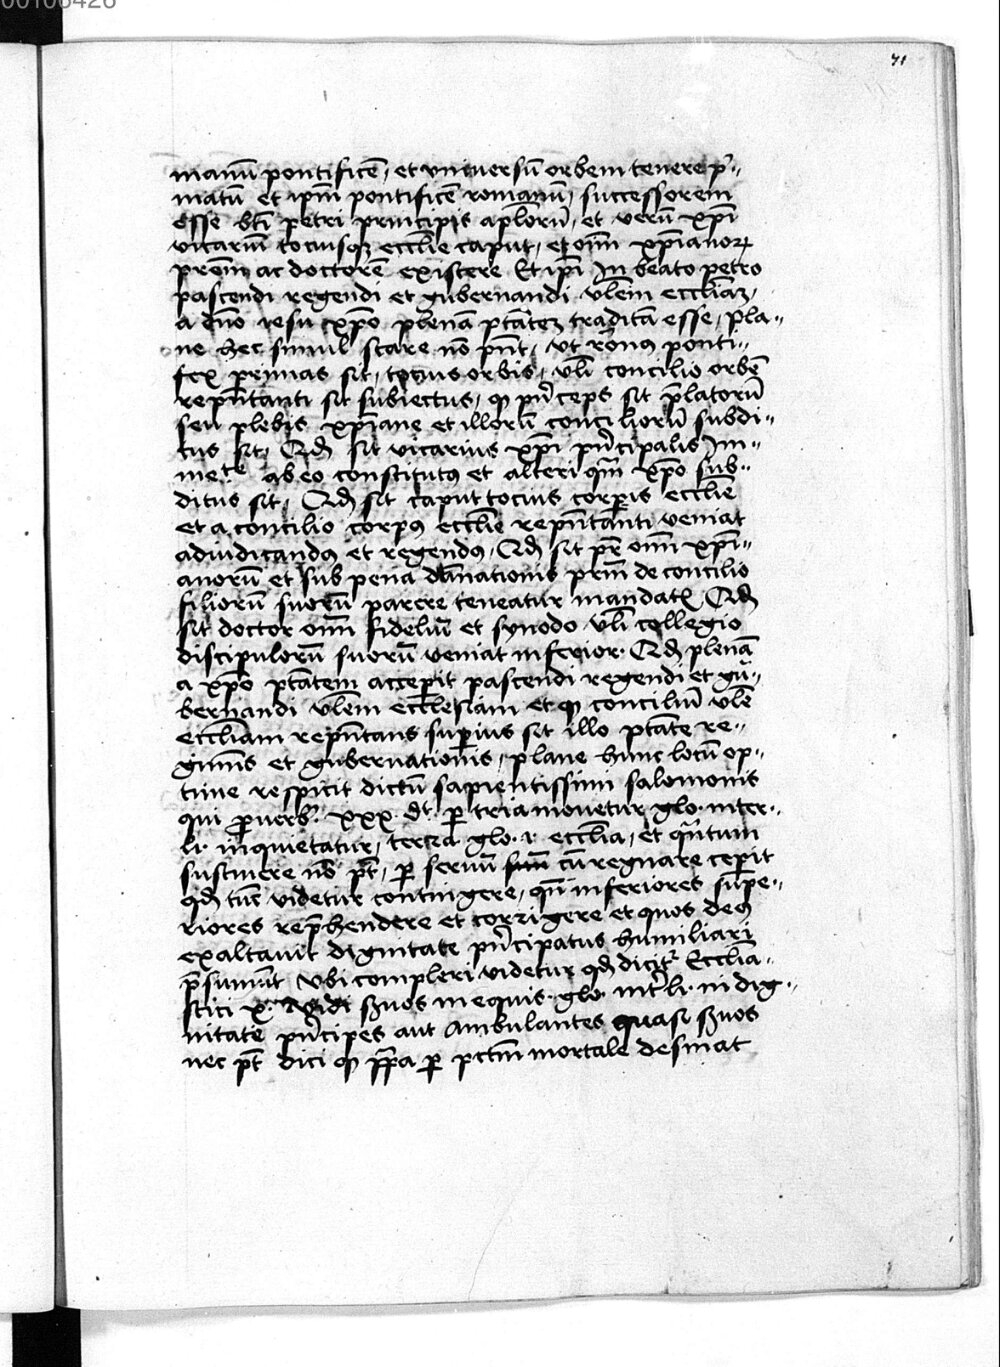 00106426
71
manū pontificē, et vniuersū orbem tenere p̄ri-
matū et ip̄m pontificē romanū, successorem
esse bt̄i petri principis ap̄lorū, et verū xp̄i
vicariū tociusqꝫ eccl̄ie caput, et om̄i xp̄ianoꝝ
pr̄em ac doctorē existere Et ip̄i In beato petro
pascendi regendi et gubernandi vl̄em eccl̄iaꝫ,
a dn̄o iesu xp̄o plenā ptātēꝫ traditā esse, pla-
ne hec simul stare nō pn̄t, vt ro̅nꝰ ponti-
fex primas sit, tocius orbis, vl̄i concilio orbē
rep̄ntanti sit subiectus, ꝙ p̄nceps sit p̄latorū
seu plebis xp̄iane et illorū conciliorū subdi-
tus sit, Qd̄ sit vicarius xp̄i p̄ncipalis Im-
me.te ab eo constitutꝰ et alteri qm̄ xp̄o sub-
ditus sit, Qd̄ sit caput tocius corꝑis eccl̄ie
et a concilio corpꝰ eccl̄ie rep̄ntanti veniat
adiudicandꝰ et regendꝰ, Qd̄ sit pr̄ om̄i xp̄i-
anorū et sub pena dānationis prīm de concilio
filiorū suorū parere teneatur mandatꝭ, Qd̄
sit doctor om̄i fideliū et synodo vl̄i collegio
discipulorū suorū veniat inferior. Qd̄ plenā
a xp̄o ptātem accepit pascendi regendi et gu-
bernandi vl̄em ecclesiam et ꝙ conciliū vl̄e
eccl̄iam rep̄ntans suꝑius sit illo ptāte re-
gim̄s et gubernationis, plane hunc locū op-
time respicit dictū sapientissimi salomonis
qui ꝓuerb. xxx. dt̄ ꝑ tria mouetur glo. inter-
li. inquietatur, terra glo. i. eccl̄ia, et q̄rtum
sustinere nō pt̄, ꝑ seruū cū regnare ceperit
qd̄ tūc videtur contingere, qn̄ inferiores supe-
riores rep̄hendere et corrigere et quos deꝰ
exaltauit dignitate p̄ncipatus humiliari
p̄sumūt Vbi compleri videtur qd̄ dicit Eccl̄ia-
stici x. Vidi s̄uos in equis. glo. int̄li. in dig-
nitate p̄ncipes aut Ambulantes quasi s̄uos
nec pt̄ dici ꝙ pp̄a ꝑ pctm̄ mortale desinat